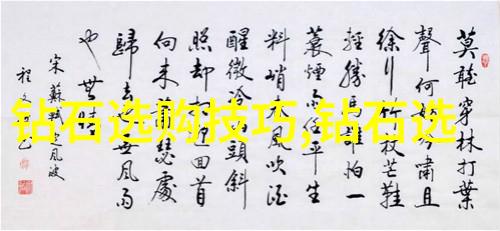 莫聽穿林打葉
聲何妨吟嘯且
徐行竹杖芒鞋
輕勝馬誰怕一
蓑煙雨任平生
料峭春風吹酒
醒微冷山頭斜
照却相迎回首
向来蕭瑟處
歸去也無風雨
也無晴
宋蘇軾定風波
程文
钻石选购技巧,钻石选